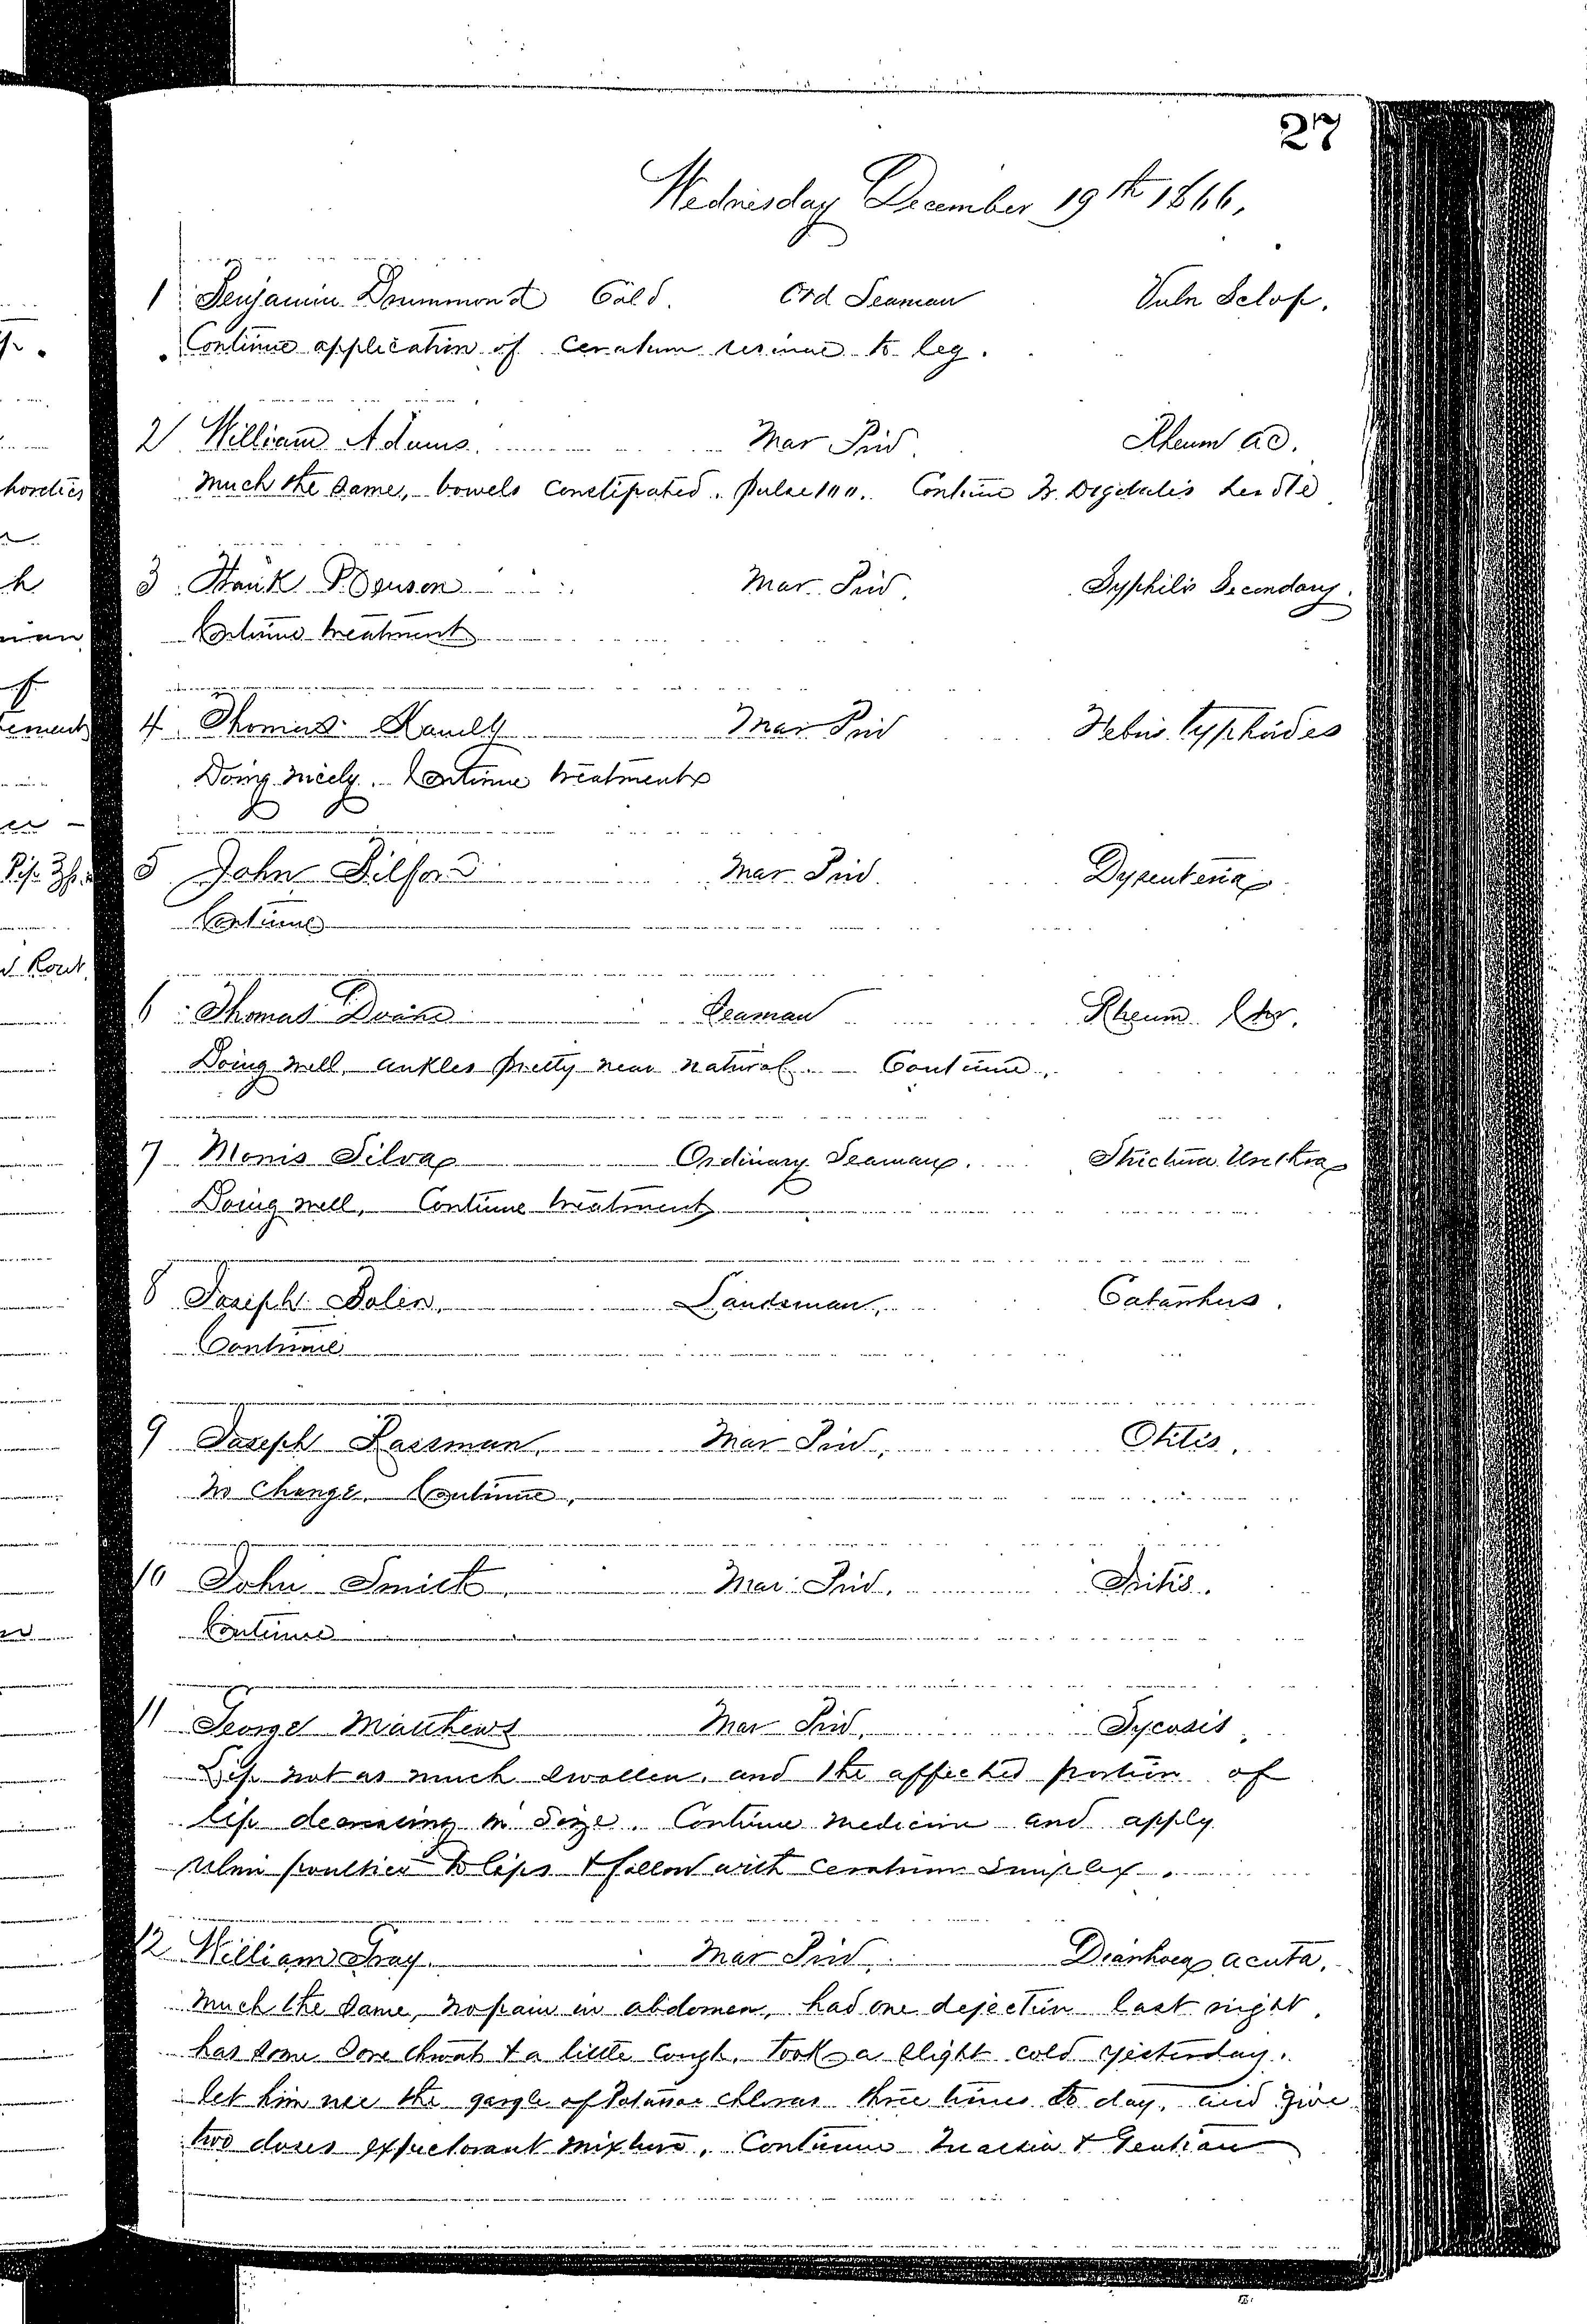 27
Wednesday December 19th 1866,
1 Benjamin Drummond Cold. Ord Seaman Vuln Sclop.
Continue application of ceratum resinae to leg.
2 William Adams. Mar Priv. Rheum ac.
Much the same, bowels constipated. pulse 100. Continue Digitalis
3 Frank Benson Mar. Priv. Syphilis Secondary.
Continue treatment
4 Thomas Mar Priv Febris Typhoides
Doing nicely. Continue treatment
5 John Pilford Mar. Priv. Dysenteria
Continue
6 Thomas Devine Seaman Rheum. Chr.
Doing well, ankles pretty near natural. Continue.
7 Monis Silva Ordinary Seaman. Strictura Urethra
Doing well, Continue treatment
8 Joseph Bolin. Landsman, Catarrhus.
Continue
9 Joseph Rassman. Mar Priv, Otitis.
No change. Continue,
10 John Smith. Mar. Priv. Iritis.
Continue
11 George Matthews Mar Priv. Sycosis,
Lip not as much swollen, and the affected portion of
lip decreasing in size. Continue medicine and apply
ulmi poultice to lips & follow with ceratum simplex.
12 William Gray. Mar Priv. Diarrhoea acuta.
Much the same, no pain in abdomen, had one dejection last night.
has some sore throat & a little cough. took a slight cold yesterday.
let him use the gargle of Potassae chloras three times to day, and give
two doses expectorant mixture. Continue Quassia & Gentian